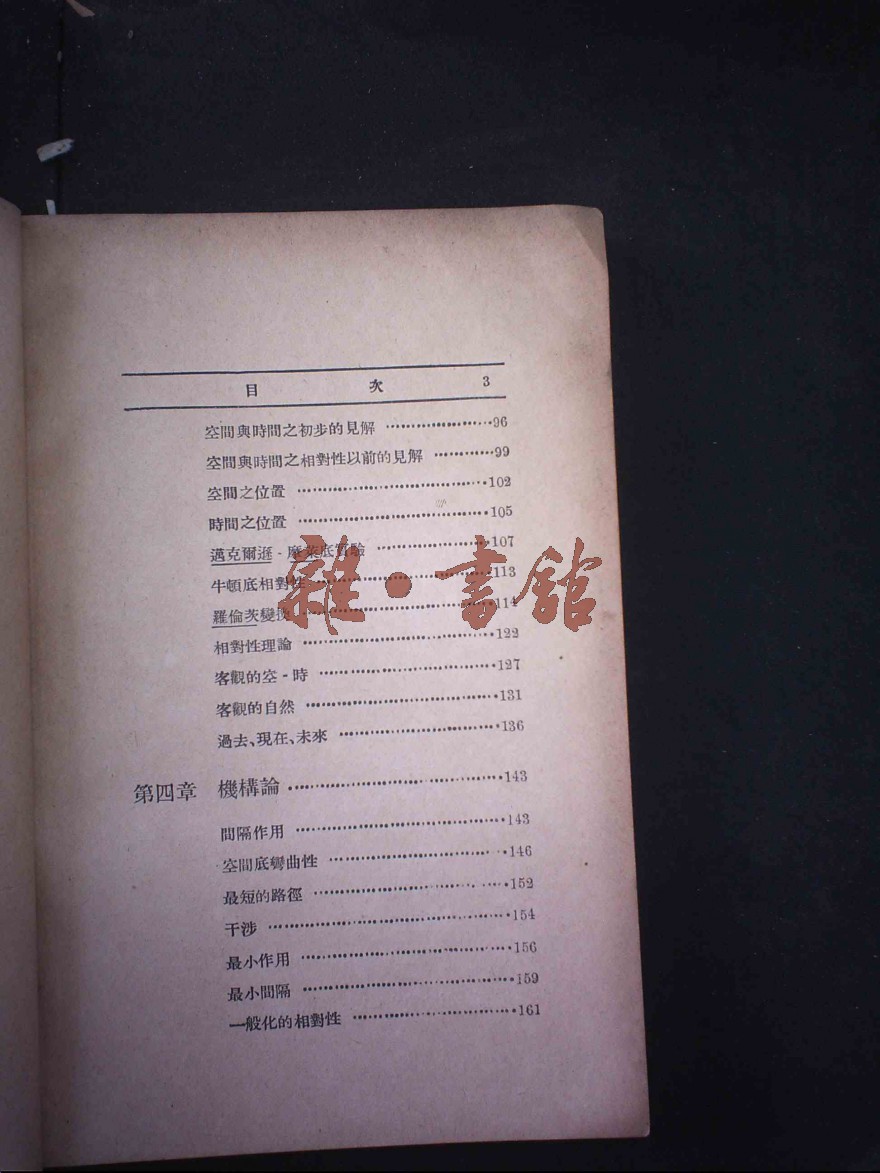 目 次 3
空間與時間之初步的見解 ……………………96
空間與時間之相對性以前的見解 …………99
空間之位置 …………………………………102
時間之位置 …………………………………105
邁克爾遜-摩萊底實驗 ……………………107
牛頓底相對性 ………………………………113
羅倫茨變換 …………………………………114
相對性理論 …………………………………122
客觀的空-時 ………………………………127
客觀的自然 …………………………………131
過去、現在、未來 …………………………136
第四章 機構論 ……………………………143
間隔作用 ……………………………………143
空間底彎曲性 ………………………………146
最短的路徑 …………………………………152
干涉 …………………………………………154
最小作用 ……………………………………156
最小間隔 ……………………………………159
一般化的相對性 ……………………………161
雜·書館